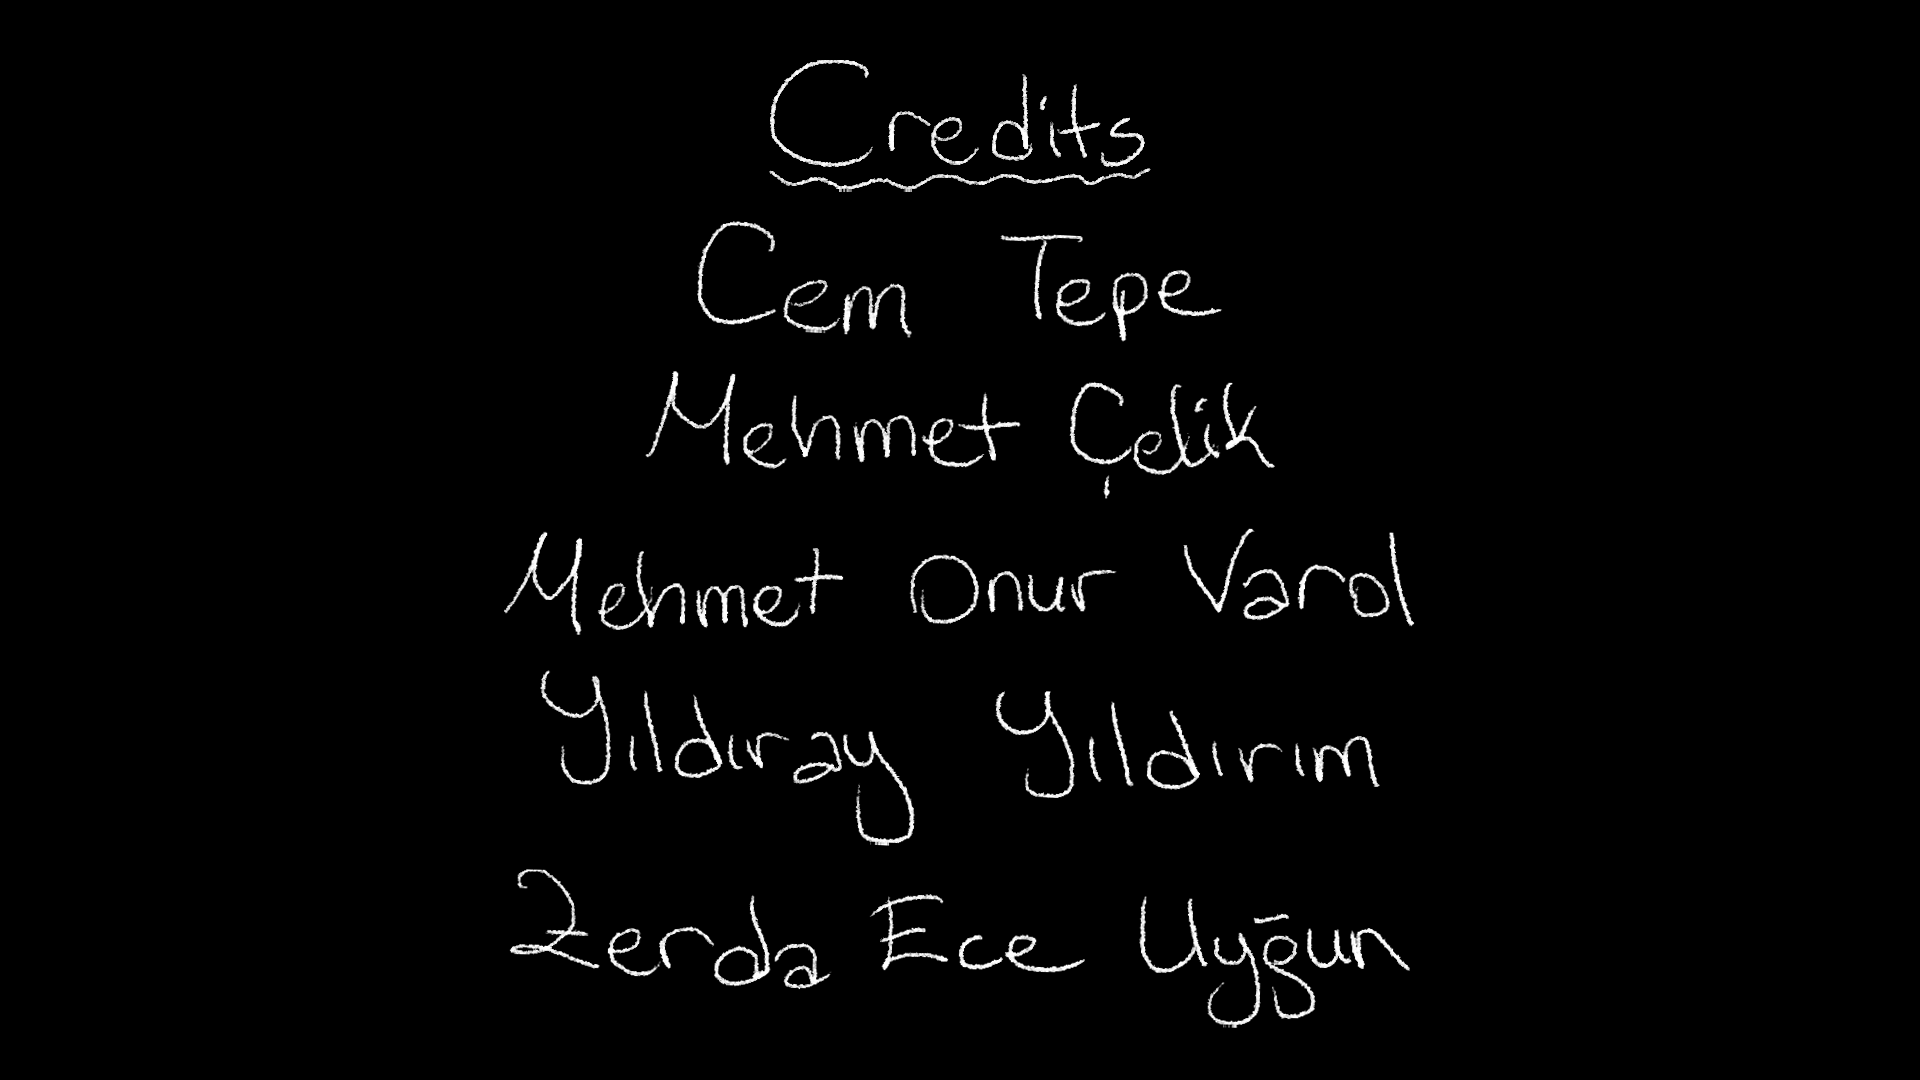 Credits
Cem Tepe
Mehmet Çelik
Mehmet Onur Varol
Yıldıray Yıldırım
Zerda Ece Uyğun